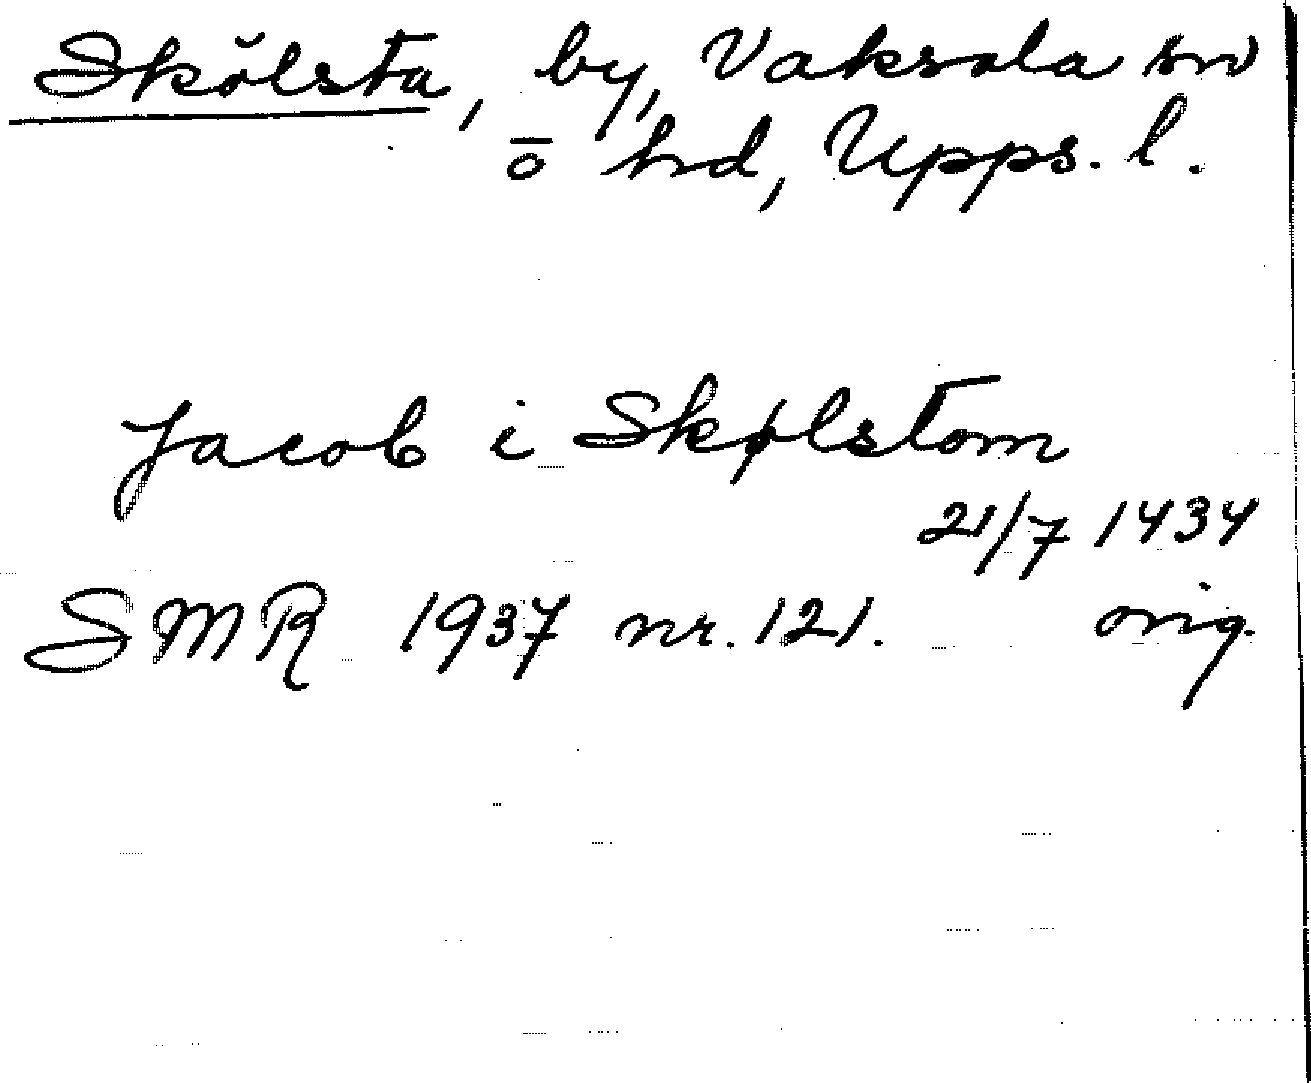 Skölsta, by, Vaksala sn
o hd, Upps. l.
Jacob i Skølstom
21/7 1434
SMR 1937 nr. 121. orig.